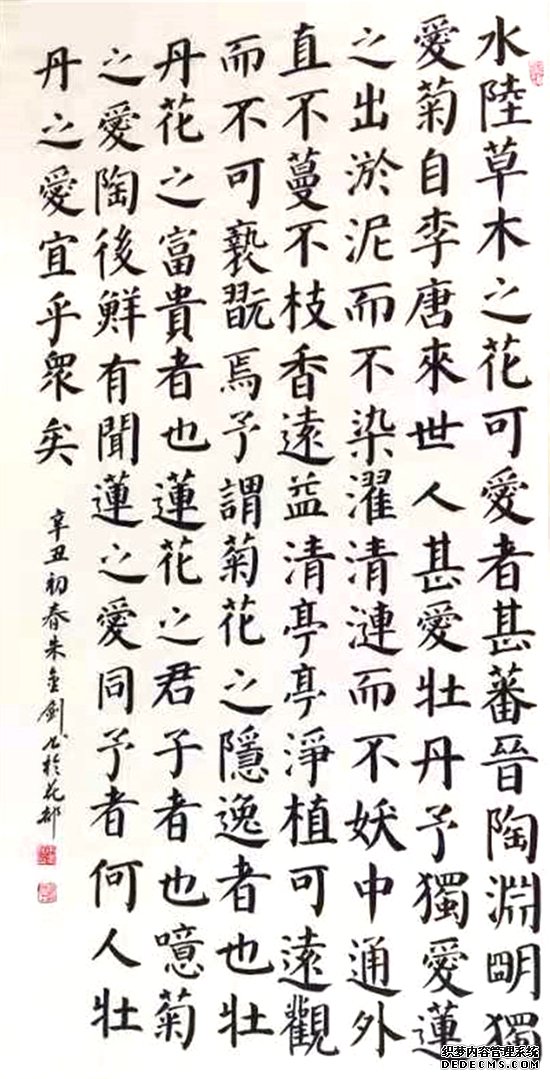 水陸草木之花可愛者甚蕃晉陶淵明獨
愛菊自李唐來世人甚愛牡丹予獨愛蓮
之出淤泥而不染濯清漣而不妖中通外
直不蔓不枝香遠益清亭亭淨植可遠觀
而不可褻翫焉予謂菊花之隱逸者也牡
丹花之富貴者也蓮花之君子者也噫菊
之愛陶後鮮有聞蓮之愛同予者何人牡
丹之愛宜乎眾矣
辛丑初春朱金劍书於花都
织梦内容管理系统
DEDECMS.COM